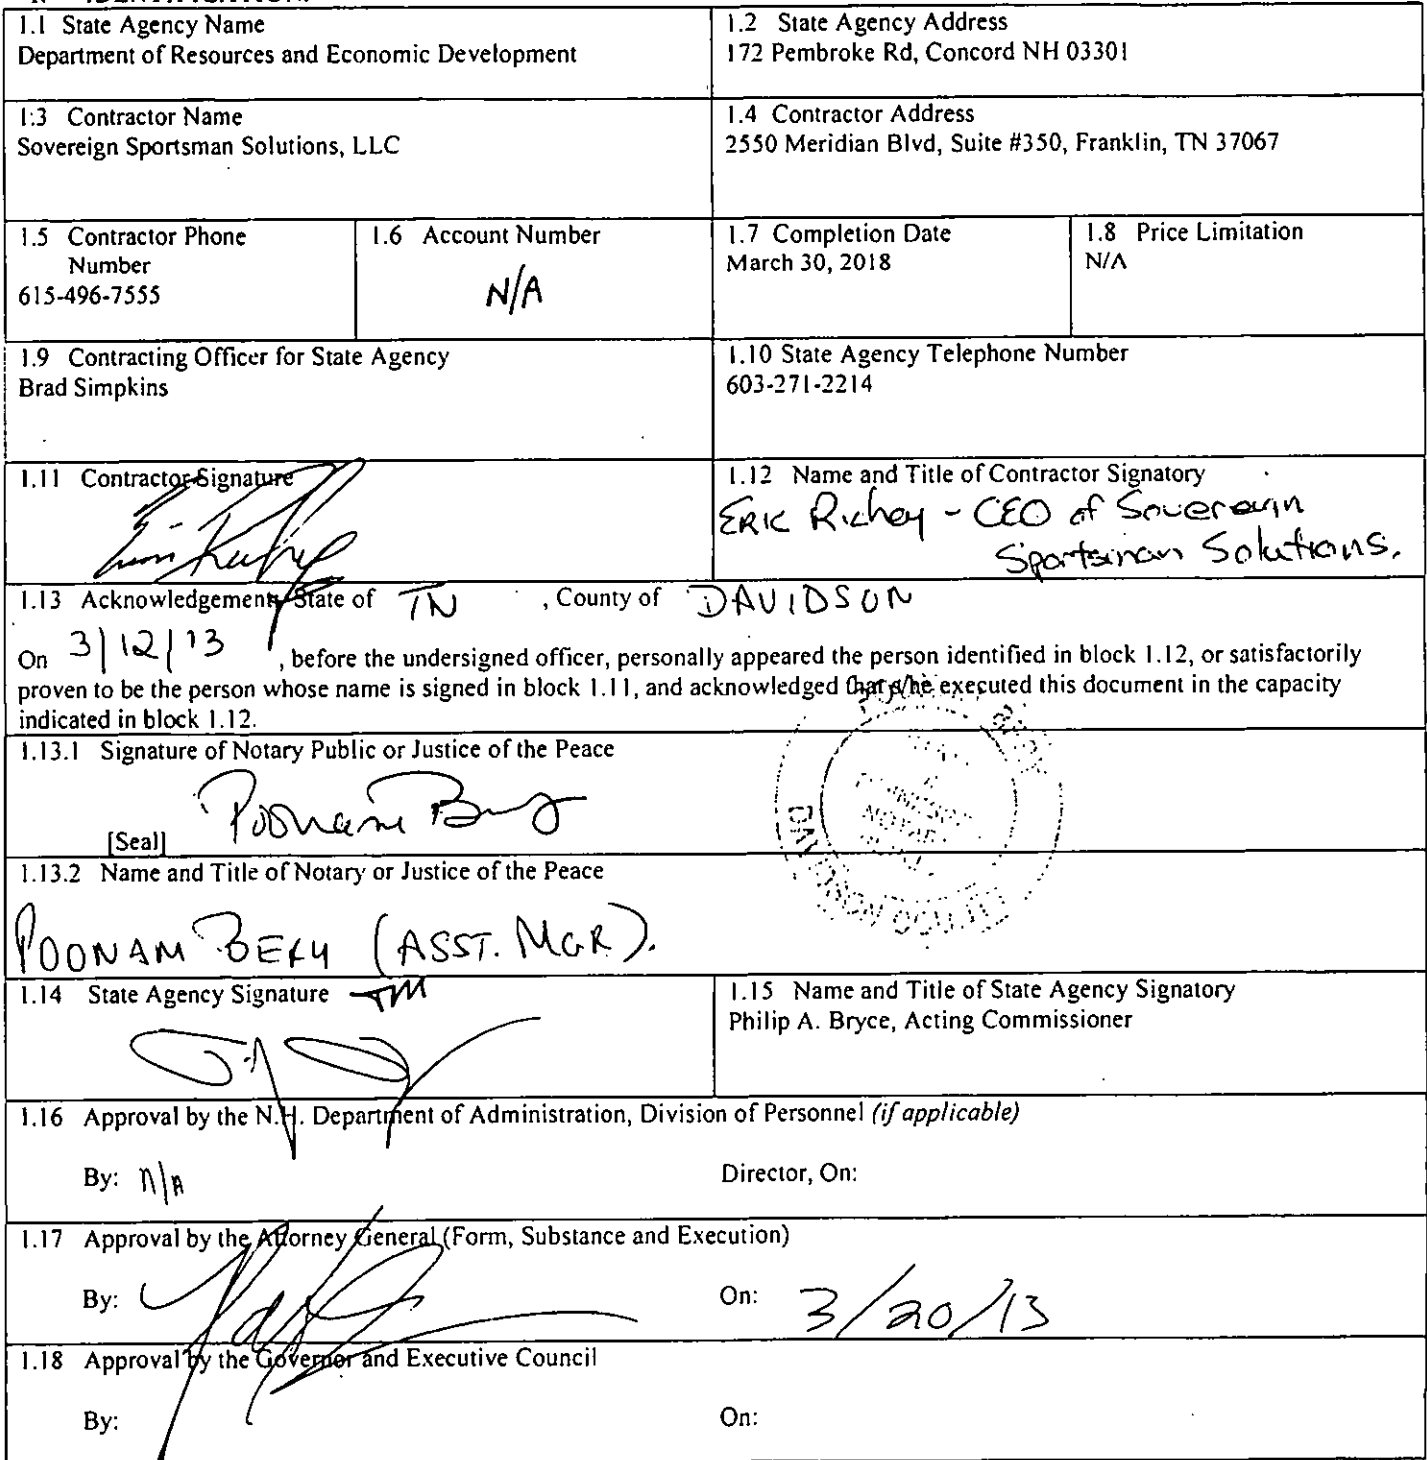 1.1 State Agency Name
Department of Resources and Economic Development
1.2 State Agency Address
172 Pembroke Rd, Concord NH 03301
1.3 Contractor Name
Sovereign Sportsman Solutions, LLC
1.4 Contractor Address
2550 Meridian Blvd, Suite #350, Franklin, TN 37067
1.5 Contractor Phone
Number
615-496-7555
1.6 Account Number
N/A
1.7 Completion Date
March 30, 2018
1.8 Price Limitation
N/A
1.9 Contracting Officer for State Agency
Brad Simpkins
1.10 State Agency Telephone Number
603-271-2214
1.11 Contractor Signature
1.12 Name and Title of Contractor Signatory
ERIC Richey - CEO of Sovereign
Sportsman Solutions.
1.13 Acknowledgement: State of TN , County of DAVIDSON
On 3/12/13 , before the undersigned officer, personally appeared the person identified in block 1.12, or satisfactorily
proven to be the person whose name is signed in block 1.11, and acknowledged that s/he executed this document in the capacity
indicated in block 1.12.
1.13.1 Signature of Notary Public or Justice of the Peace
Poonam
[Seal]
1.13.2 Name and Title of Notary or Justice of the Peace
POONAM BERY (ASST. MGR).
1.14 State Agency Signature
1.15 Name and Title of State Agency Signatory
Philip A. Bryce, Acting Commissioner
1.16 Approval by the N.H. Department of Administration, Division of Personnel (if applicable)
By: n/a Director, On:
1.17 Approval by the Attorney General (Form, Substance and Execution)
By: On: 3/20/13
1.18 Approval by the Governor and Executive Council
By: On: